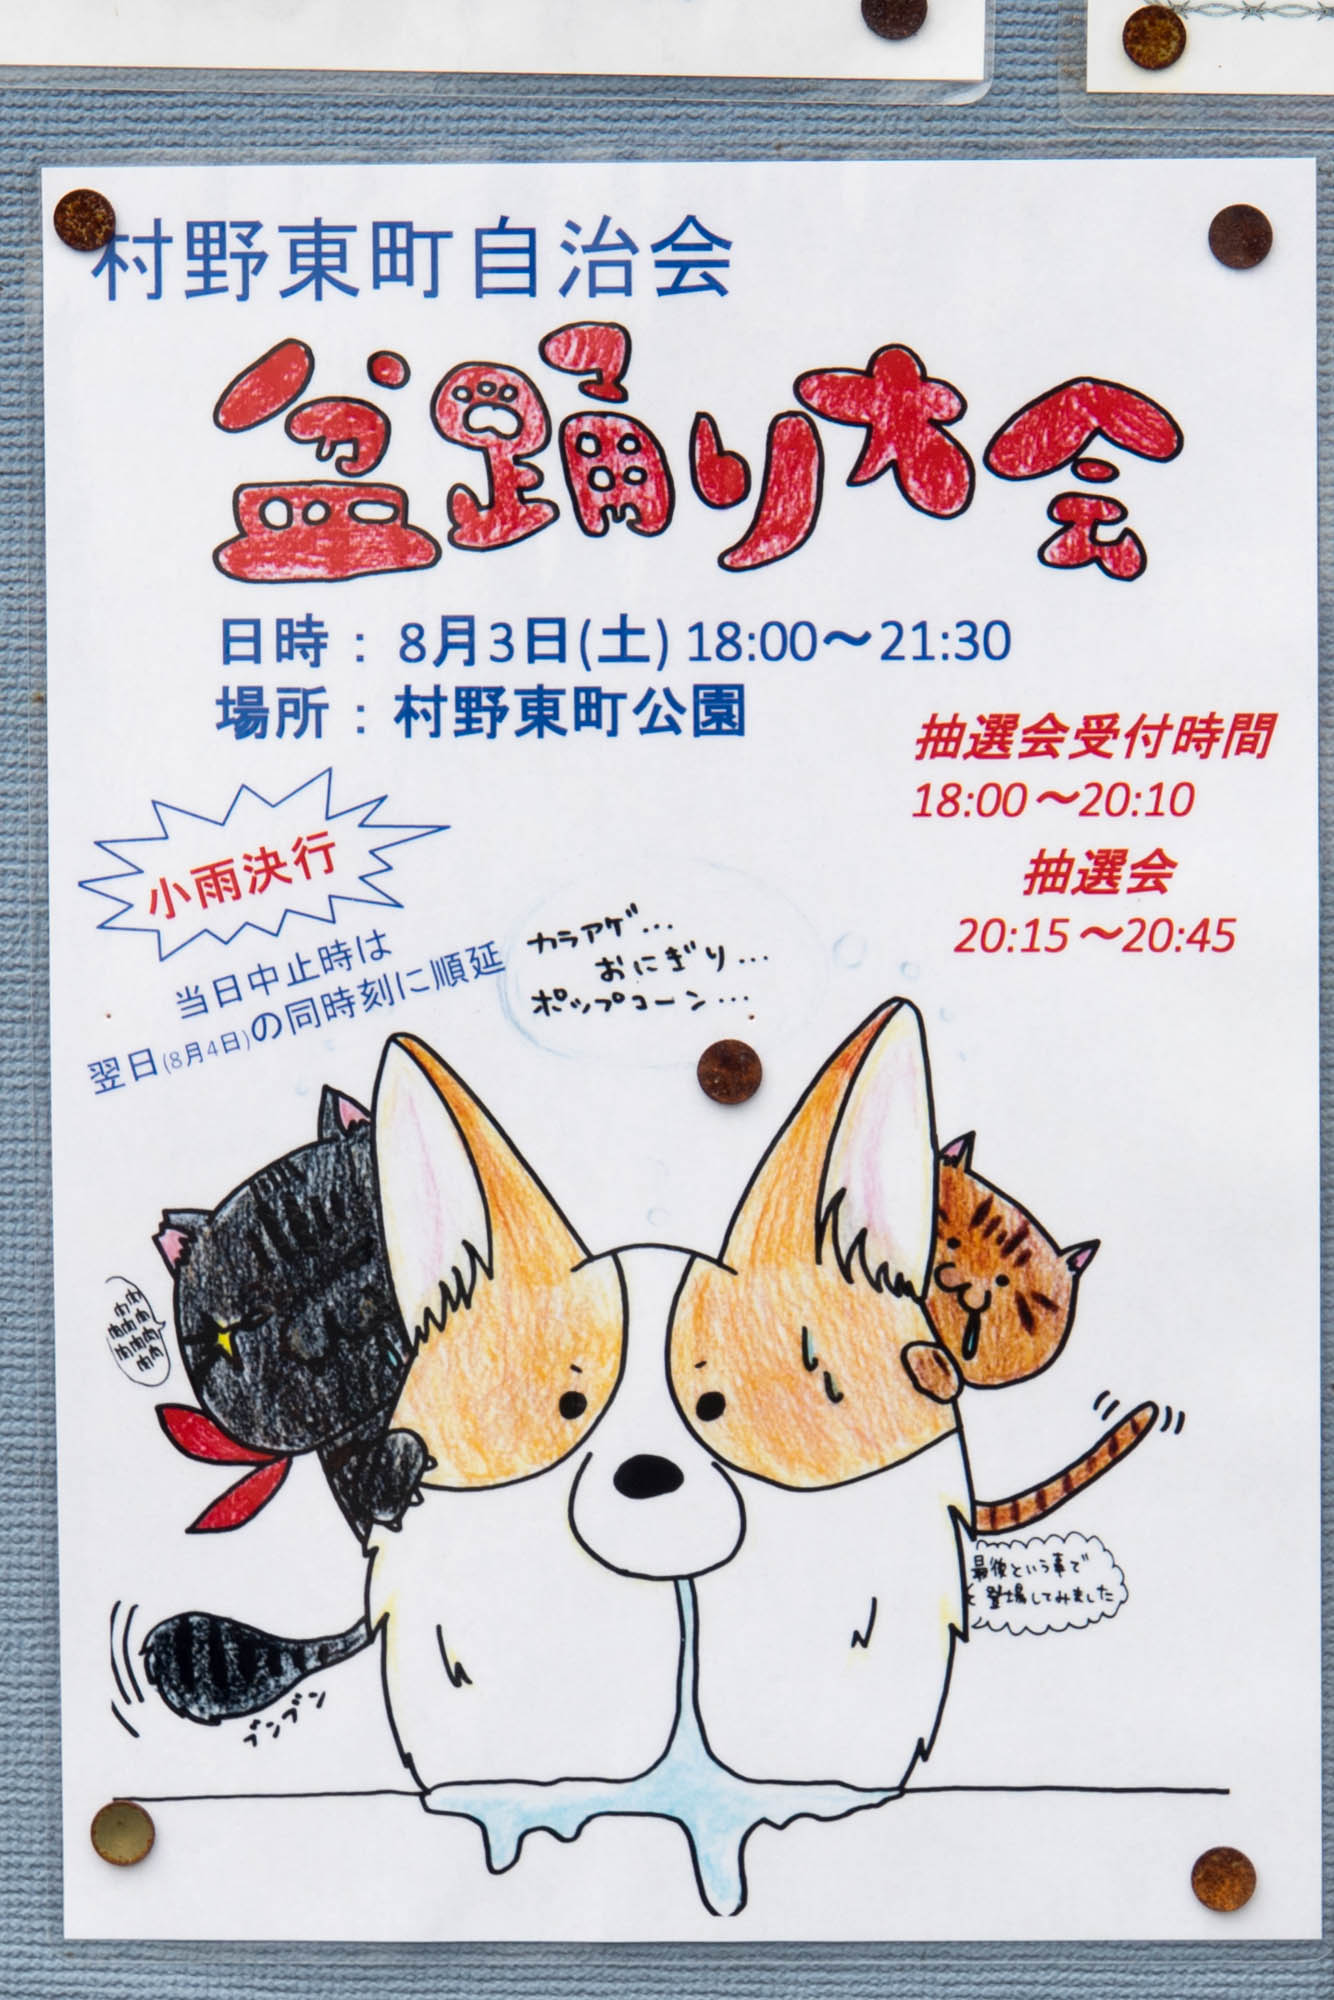 村野東町自治会
盆踊り大会
日時：8月3日(土) 18:00～21:30
場所：村野東町公園
抽選会受付時間
18:00～20:10
抽選会
20:15～20:45
小雨決行
当日中止時は
翌日(8月4日)の同時刻に順延
カラアゲ…
おにぎり…
ポップコーン…
肉肉
肉肉肉
肉肉肉肉
肉肉
最後という事で
と登場してみました
ブンブン